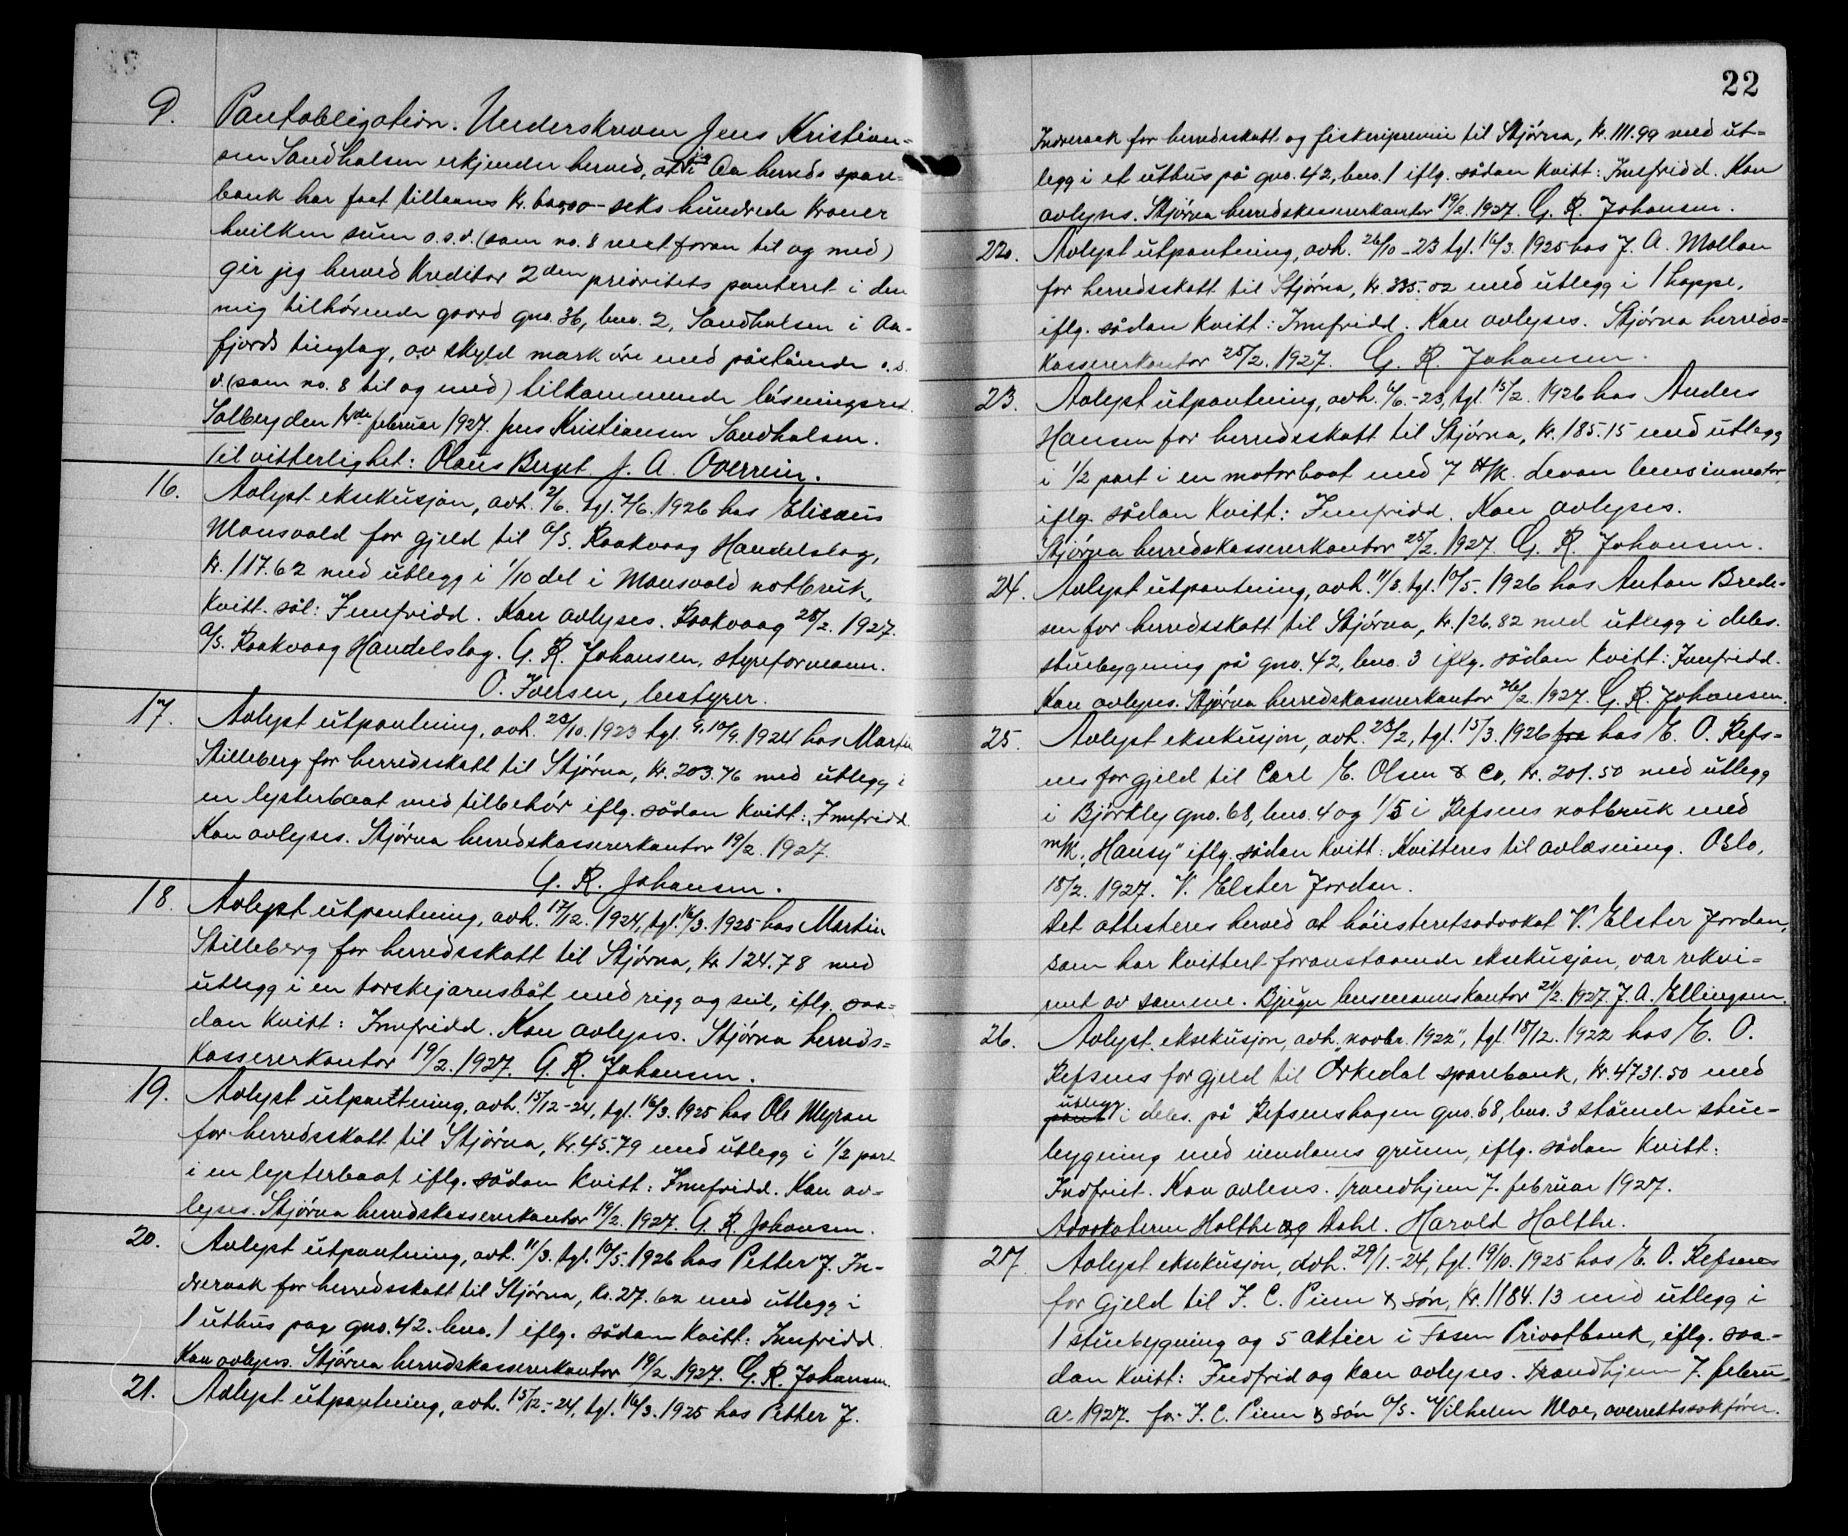 22
9. Pantobligation. Underskreven Jens Kristian-
sen Sandholsen erkjender herved, at jeg i Aa herreds spare-
bank har faat tillaans kr. 600,00 - seks hundrede kroner
hvilken sum o.s.v. (som no. 8 næst foran til og med)
gir jeg herved kreditor 2den prioritets panteret i den
mig tilhørende gaard gno. 36, bno. 2, Sandholsen i Aa-
fjords tinglag, av skyld mark øre med påstående o.s.
v. (som no. 8 til og med) tilkommende løsningsret.
Solberg den 14de februar 1927. Jens Kristiansen Sandholsen.
Til vitterlighet: Olaus Berget. J. A. Overrein.
16. Avlyst eksekusjon, avh. 2/6. tgl. 7/6. 1926 hos Eliseus
Monsvold for gjeld til A/S. Raakvaag Handelslag,
kr. 117.62 med utlegg i 1/10 del i Monsvold notbruk,
kvitt. sål: Innfridd. Kan avlyses. Raakvaag 28/2. 1927.
A/S. Raakvaag Handelslag. G. R. Johansen, styreformann.
O. Iversen, bestyrer.
17. Avlyst utpantning, avh. 23/10. 1923 tgl. 9, 10/9. 1924 hos Martin
Stilleberg for herredsskatt til Stjørna, kr. 203.76 med utlegg i
en lysterbaat med tilbehør iflg. sådan kvitt: Innfridd.
Kan avlyses. Stjørna herredskassererkontor 19/2. 1927.
G. R. Johansen.
18. Avlyst utpantning, avh. 17/12. 1924, tgl. 16/3. 1925 hos Martin
Stilleberg for herredsskatt til Stjørna, kr. 124.78 med
utlegg i en torskegarnsbåt med rigg og seil, iflg. saa-
dan kvitt: Innfridd. Kan avlyses. Stjørna herreds-
kassererkontor 19/2. 1927. G. R. Johansen.
19. Avlyst utpantning, avh. 15/12-24, tgl. 16/3. 1925 hos Ole Myran
for herredsskatt til Stjørna, kr. 45.79 med utlegg i 1/2 part
i en lysterbaat iflg. sådan kvitt: Innfridd. Kan av-
lyses. Stjørna herredskassererkontor 19/2. 1927. G. R. Johansen.
20. Avlyst utpantning, avh. 11/3. tgl. 10/5. 1926 hos Petter J. In-
drevak for herredsskatt til Stjørna, kr. 27.62 med utlegg i
1 uthus paa gno. 42. bno. 1 iflg. sådan kvitt: Innfridd.
Kan avlyses. Stjørna herredskassererkontor 19/2. 1927. G. R. Johansen.
21. Avlyst utpantning, avh. 15/12.-24, tgl. 16/3. 1925 hos Petter J.
Indrevak for herredsskatt og fiskeripremie til Stjørna, kr. 111.99 med ut-
legg i et uthus på gno. 42, bno. 1 iflg. sådan kvitt: Innfridd. Kan
avlyses. Stjørna herredskassererkontor 19/2. 1927. G. R. Johansen.
22. Avlyst utpantning, avh. 26/10-23 tgl. 16/3. 1925 hos J. A. Mollan
for herredsskatt til Stjørna, kr. 335.02 med utlegg i 1 hoppe,
iflg. sådan kvitt: Innfridd. Kan avlyses. Stjørna herreds-
kassererkontor 25/2. 1927. G. R. Johansen.
23. Avlyst utpantning, avh. 6/6.-23, tgl. 15/2. 1926 hos Anders
Hansen for herredsskatt til Stjørna, kr. 185.15 med utlegg
i 1/2 part i en motorbaat med 7 H/K. Levan bensinmotor,
iflg. sådan kvitt: Innfridd. Kan avlyses.
Stjørna herredskassererkontor 25/2. 1927. G. R. Johansen.
24. Avlyst utpantning, avh. 11/3. tgl. 10/5. 1926 hos Anton Brede-
sen for herredsskatt til Stjørna, kr. 126.82 med utlegg i deb.s.
stuebygning på gno. 42, bno. 3 iflg. sådan kvitt: Innfridd.
Kan avlyses. Stjørna herredskassererkontor 26/2. 1927. G. R. Johansen.
25. Avlyst eksekusjon, avh. 23/2, tgl. 15/3. 1926 fra hos E. O. Refs-
nes for gjeld til Carl E. Olsen & Co, kr. 201.50 med utlegg
i Bjørkly gno. 68, bno. 4 og 1/5 i Refsnes notbruk med
m/k. "Hansy" iflg. sådan kvitt: Kvitteres til avlæsning. Oslo,
18/2. 1927. V. Elster Jordan.
Det attesteres herved at høiesteretsadvokat V. Elster Jordan,
som har kvittert foranstaaende eksekusjon, var rekvi-
rent av samme. Bjugn lensmannskontor 21/2. 1927. J. A. Ellingsen.
26. Avlyst eksekusjon, avh. "novbr. 1922", tgl. 18/12. 1922 hos E. O.
Refsnes for gjeld til Orkedal sparebank, kr. 4731.50 med
pant utlegg i deb.s. på Refsneshagen gno. 68, bno. 3 stående stue-
bygning med eiendoms grunn, iflg. sådan kvitt:
Indfriet. Kan avleses. Trondhjem 7. februar 1927.
Advokaterne Holthe og Dahl. Harald Holthe.
27. Avlyst eksekusjon, avh. 29/1.-24, tgl. 19/10. 1925 hos E. O. Refsnes
for gjeld til I. C. Piene & søn, kr. 1184.13 med utlegg i
1 stuebygning og 5 aktier i Fosen Privatbank, iflg. saa-
dan kvitt: Indfrid og kan avlyses. Trondhjem 7. febru-
ar 1927. for I. C. Piene & søn A/S. Vilhelm Moe, overrettssakfører.